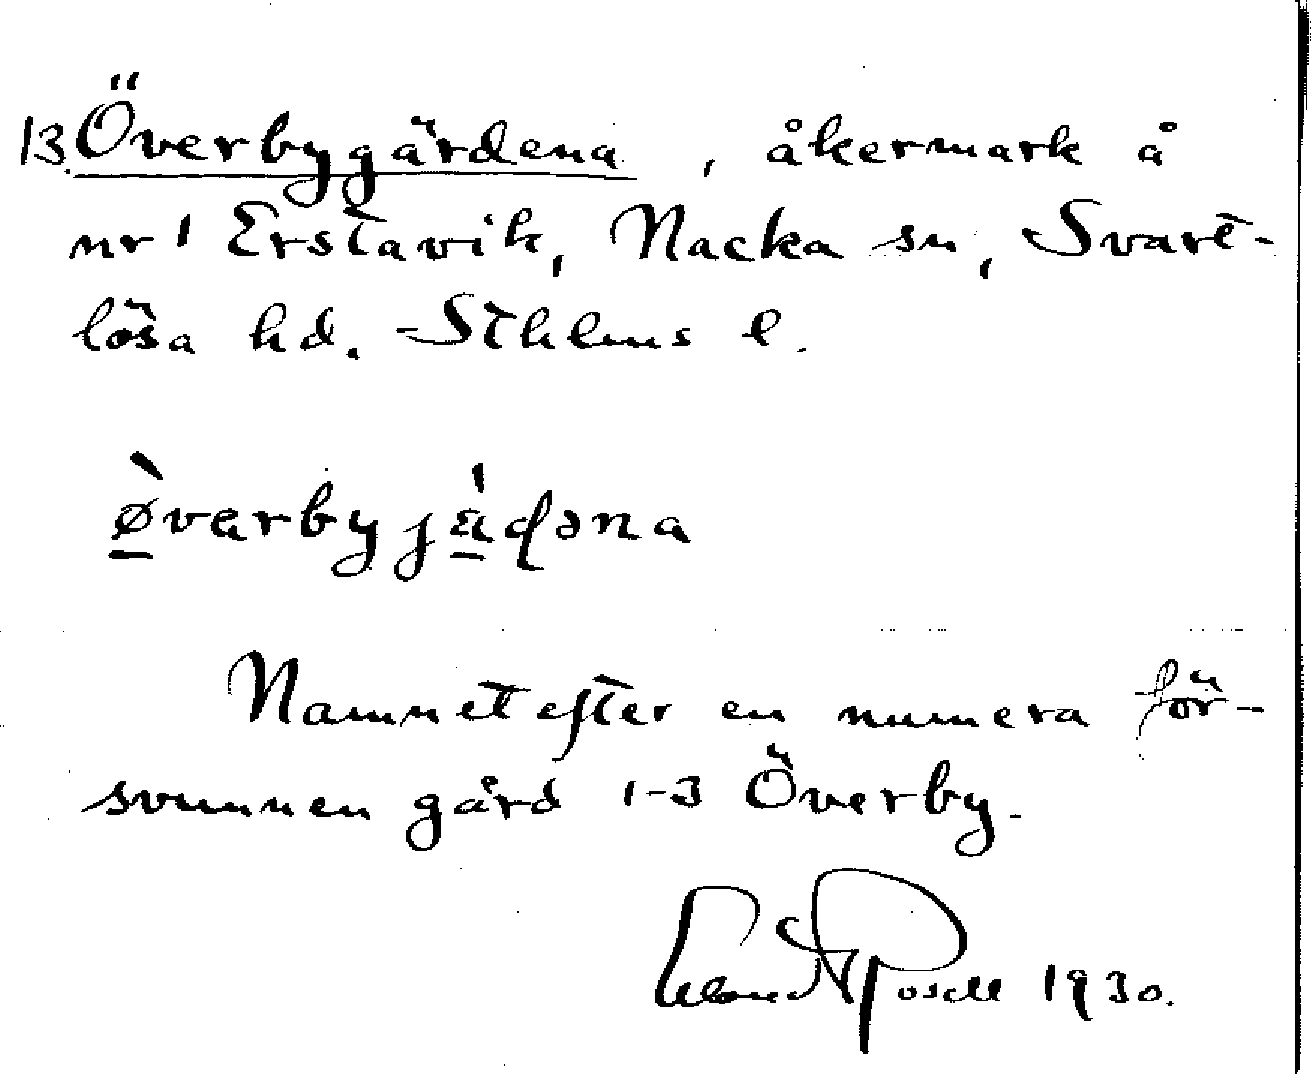 13. Överbygärdena, åkermark å
nr 1 Erstavik, Nacka sn, Svart-
lösa hd. Sthlms l.
ø̀varbyjä́dəna
Namnet efter en numera för-
svunnen gård 1-3 Överby.
1930.